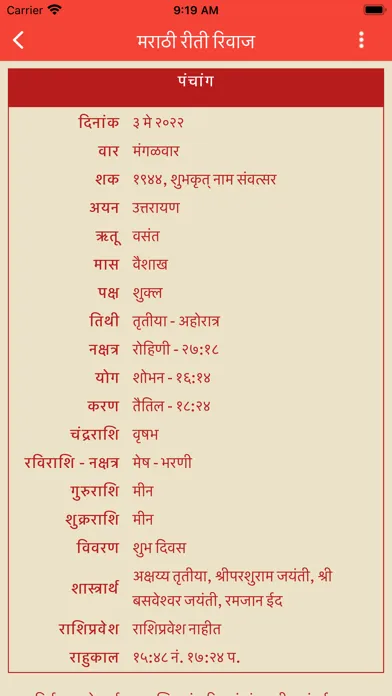 Carrier 9:19 AM
मराठी रीती रिवाज
पंचांग
दिनांक ३ मे २०२२
वार मंगळवार
शक १९४४, शुभकृत् नाम संवत्सर
अयन उत्तरायण
ऋतू वसंत
मास वैशाख
पक्ष शुक्ल
तिथी तृतीया - अहोरात्र
नक्षत्र रोहिणी - २७:१८
योग शोभन - १६:१४
करण तैतिल - १८:२४
चंद्रराशि वृषभ
रविराशि - नक्षत्र मेष - भरणी
गुरुराशि मीन
शुक्रराशि मीन
विवरण शुभ दिवस
शास्त्रार्थ अक्षय्य तृतीया, श्रीपरशुराम जयंती, श्री
बसवेश्वर जयंती, रमजान ईद
राशिप्रवेश राशिप्रवेश नाहीत
राहुकाल १५:४८ नं. १७:२४ प.